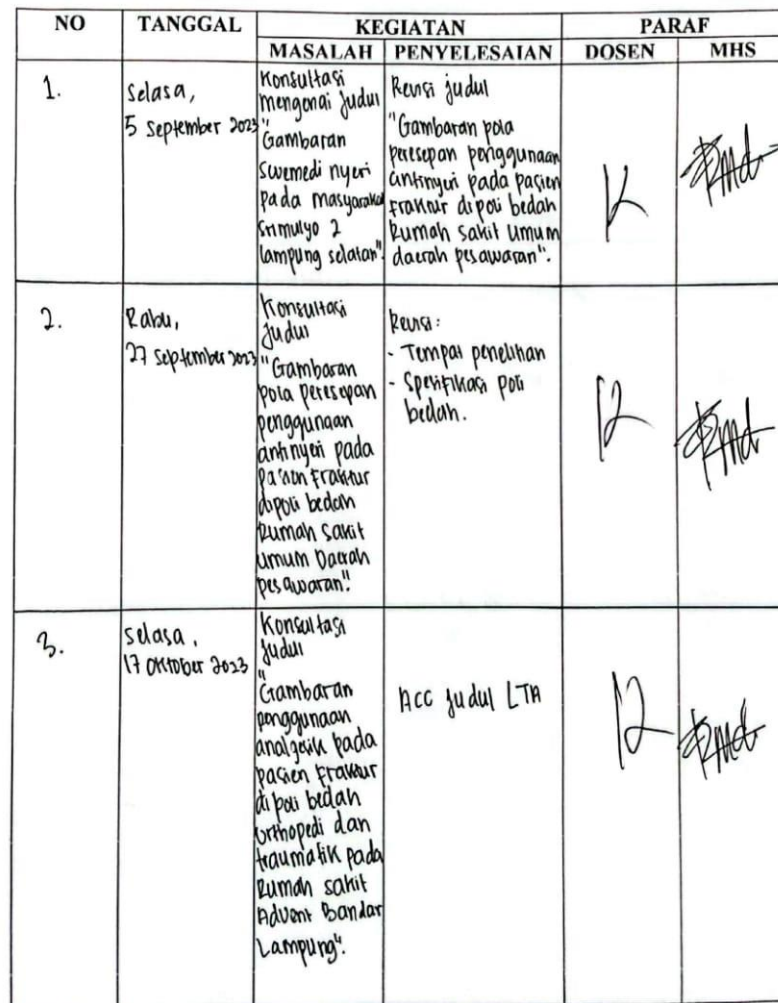 NO TANGGAL KEGIATAN PARAF
MASALAH PENYELESAIAN DOSEN MHS
1.
Selasa,
5 September 2023
Konsultasi
mengenai judul
"
Gambaran
Swemedi nyeri
pada masyarakat
Srimulyo 2
lampung selatan".
Revisi judul
"Gambaran pola
peresepan penggunaan
antinyeri pada pasien
Fraktur dipoli bedah
Rumah sakit umum
daerah pesawaran".
2.
Rabu,
27 September 2023
Konsultasi
judul
"Gambaran
pola peresepan
penggunaan
antinyeri pada
pasien Fraktur
dipoli bedah
Rumah sakit
umum Daerah
pesawaran".
Revisi:
- Tempat penelitian
- Spesifikasi poli
bedah.
3.
Selasa,
17 Oktober 2023
Konsultasi
judul
"
Gambaran
penggunaan
analgesik pada
pasien Fraktur
di poli bedah
orthopedi dan
traumatik pada
Rumah sakit
Advent Bandar
Lampung".
ACC judul LTA